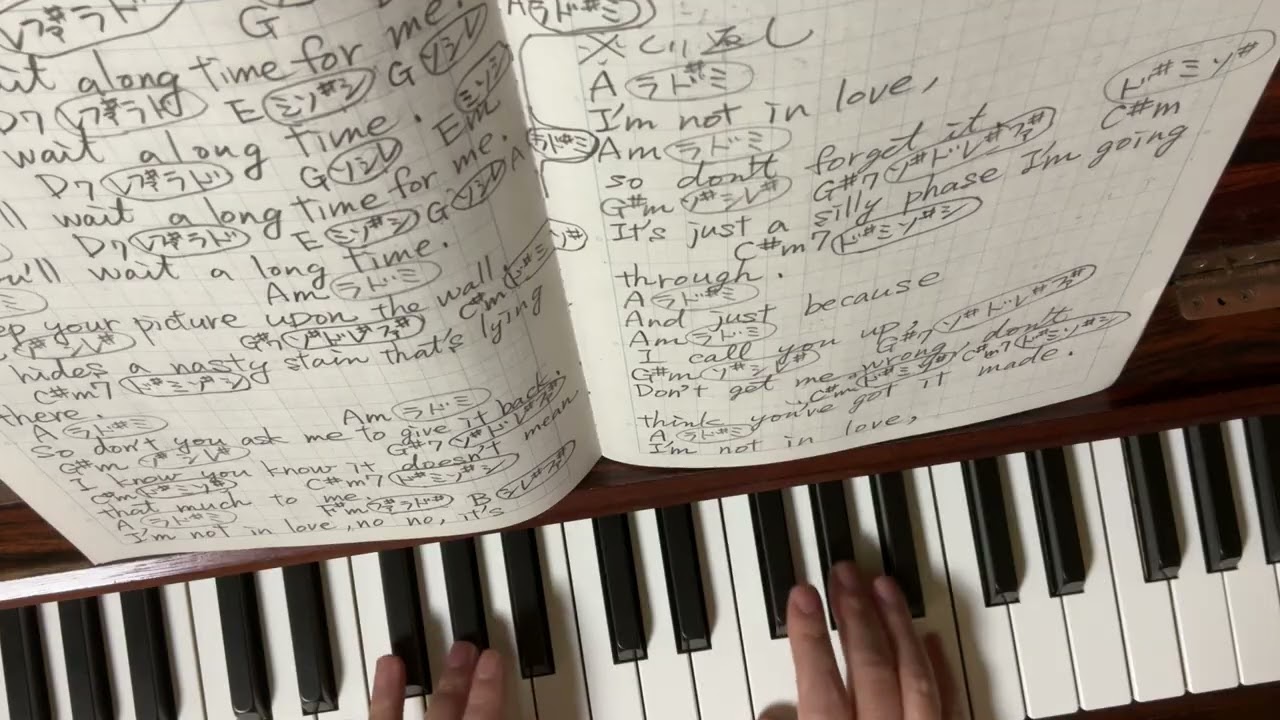 レファ#ラド G
it along time for me.
D7 レファ#ラド E ミソ#シ G ソシレ
wait along time. Em ミソシ
D7 レファ#ラド G ソシレ A ラド#ミ
ll wait a long time for me.
D7 レファ#ラド E ミソ#シ G ソシレ
ou'll wait a long time.
Am ラドミ
ep your picture upon the wall.
ソ#シレ# G#7 ソ#ドレ#ファ# C#m ド#ミソ#
hides a nasty stain that's lying
C#m7 ド#ミソ#シ
there.
A ラド#ミ Am ラドミ
So don't you ask me to give it back.
G#m ソ#シレ# G#7 ソ#ドレ#ファ#
I know you know it doesn't mean
C#m ド#ミソ# C#m7 ド#ミソ#シ
that much to me.
A ラド#ミ F#m ファ#ラド# B シレ#ファ#
I'm not in love, no no, it's
A ラド#ミ
※くり返し
A ラド#ミ
I'm not in love,
Am ラドミ
so don't forget it.
G#m ソ#シレ# G#7 ソ#ドレ#ファ# C#m ド#ミソ#
It's just a silly phase I'm going
C#m7 ド#ミソ#シ
through.
A ラド#ミ
And just because
Am ラドミ
I call you up,
G#m ソ#シレ# G#7 ソ#ドレ#ファ#
Don't get me wrong, don't
C#m ド#ミソ# C#m7 ド#ミソ#シ
think you've got it made.
A ラド#ミ
I'm not in love,